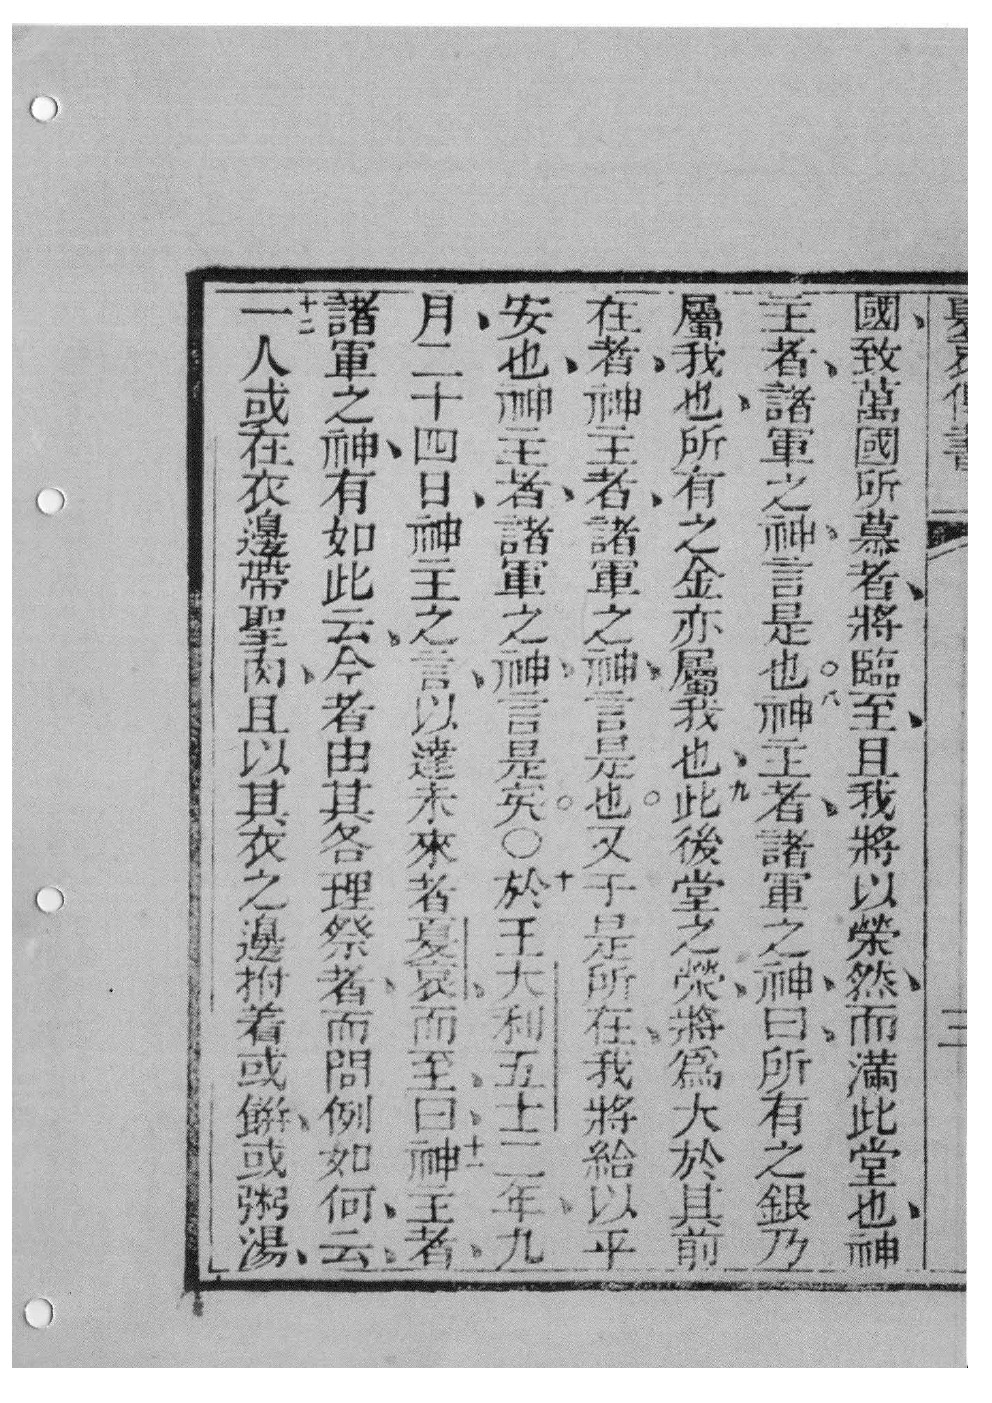 夏哀傳書 三
國、致萬國所慕者、將臨至、且我將以榮然、而滿此堂也、神
主者、諸軍之神、言是也。八神主者、諸軍之神、曰、所有之銀乃
屬我也、所有之金亦屬我也、九此後堂之榮、將爲大於其前
在者、神主者、諸軍之神、言是也。又于是所在、我將給以平
安也、神主者、諸軍之神、言是矣。〇十於王大利五士二年、九
月、二十四日、神主之言、以達未來者夏哀、而至、曰、十一神主者、
諸軍之神、有如此云、今者由其各理祭者、而問例如何、云、
十二一人或在衣邊帶聖肉、且以其衣之邊拊着或餅、或粥湯、